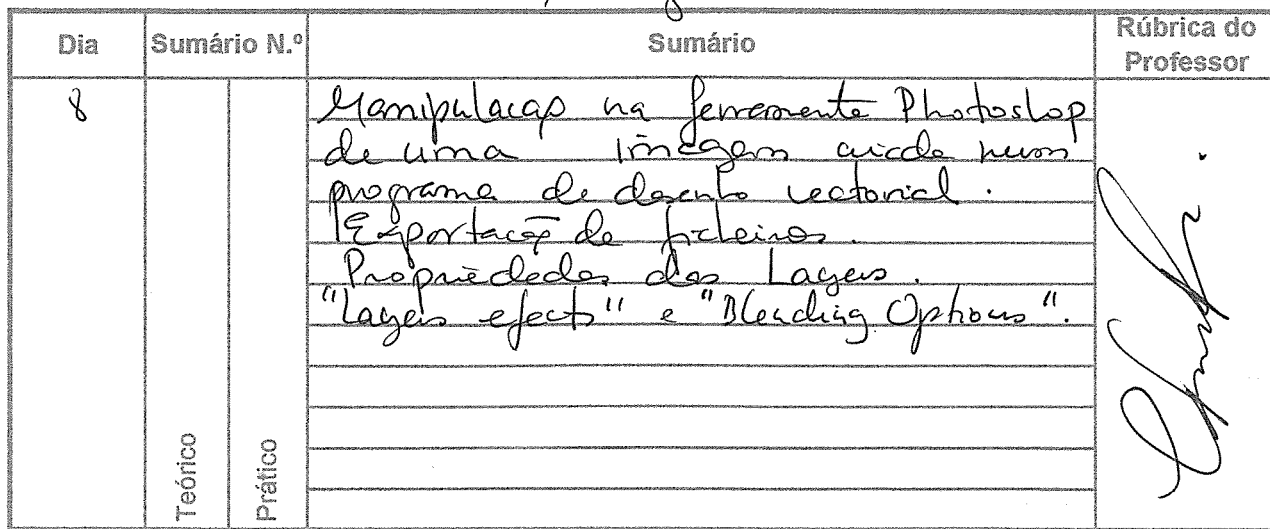 Dia Sumário N.º Sumário Rúbrica do Professor
8
Manipulação na ferramenta Photoshop
de uma imagem criada num
programa de desenho vectorial.
Exportação de ficheiros.
Propriedades dos Layers.
"Layers efects" e "Blending Options".
Teórico
Prático